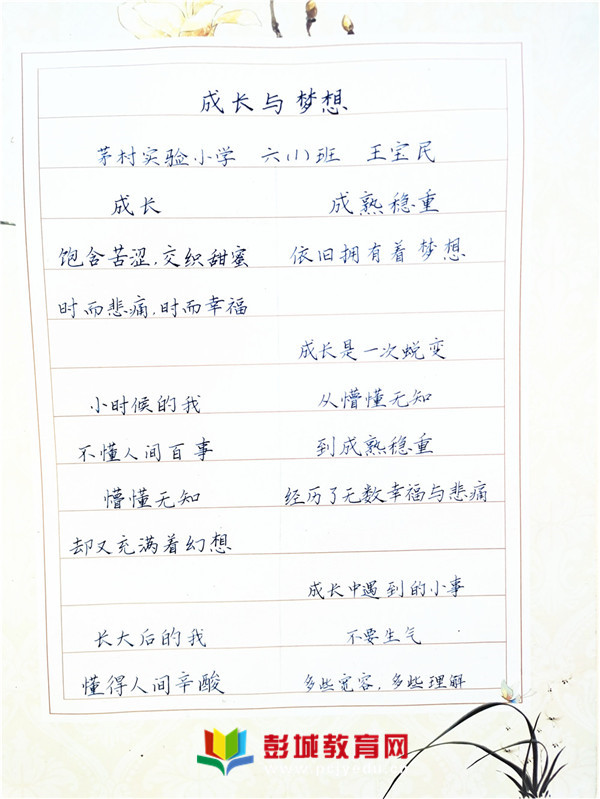 成长与梦想
茅村实验小学 六(1)班 王宝民
成长
饱含苦涩,交织甜蜜
时而悲痛,时而幸福
小时候的我
不懂人间百事
懵懂无知
却又充满着幻想
长大后的我
懂得人间辛酸
成熟稳重
依旧拥有着梦想
成长是一次蜕变
从懵懂无知
到成熟稳重
经历了无数幸福与悲痛
成长中遇到的小事
不要生气
多些宽容,多些理解
彭城教育网